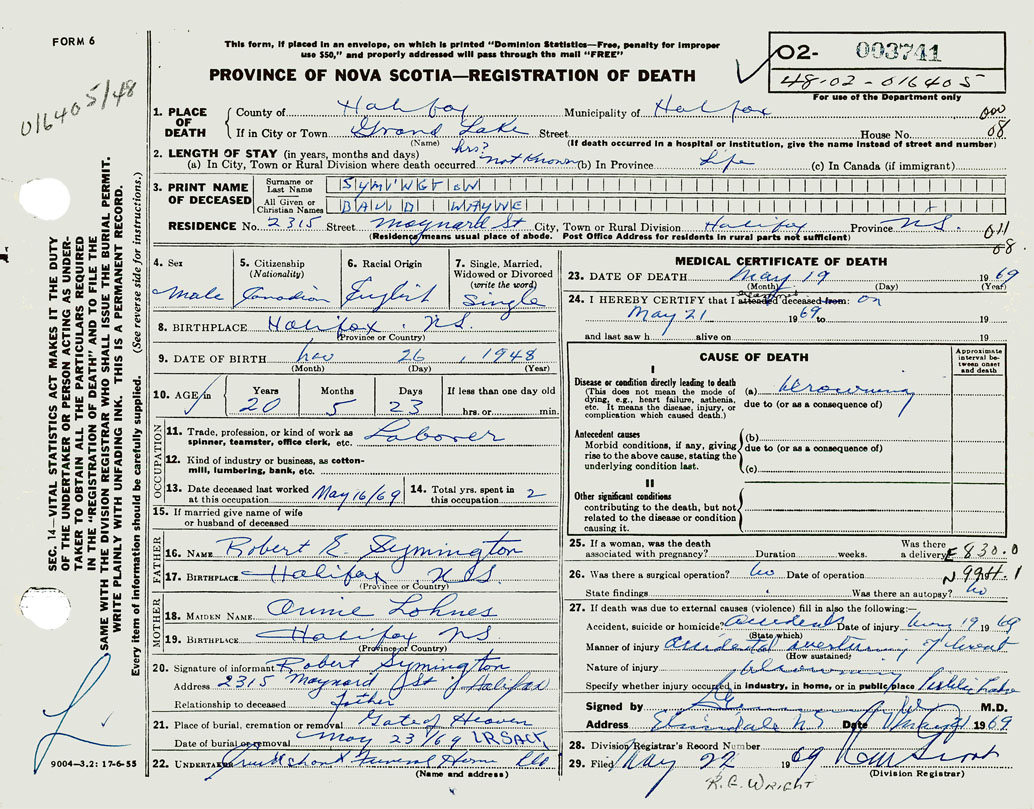 FORM 6
This form, if placed in an envelope, on which is printed "Dominion Statistics—Free, penalty for improper
use $50," and properly addressed will pass through the mail "FREE"
PROVINCE OF NOVA SCOTIA—REGISTRATION OF DEATH
02- 003741
48-02-016405
For use of the Department only
016405/48
1. PLACE OF DEATH
County of Halifax Municipality of Halifax 000
If in City or Town Grand Lake Street House No. 08
(Name) (If death occurred in a hospital or institution, give the name instead of street and number)
2. LENGTH OF STAY (in years, months and days) hrs?
(a) In City, Town or Rural Division where death occurred not known (b) In Province Life (c) In Canada (if immigrant)
3. PRINT NAME OF DECEASED
Surname or Last Name SYMINGTON
All Given or Christian Names DAVID WAYNE
RESIDENCE No. 2315 Street Maynard St City, Town or Rural Division Halifax Province N.S. 011
(Residence means usual place of abode. Post Office Address for residents in rural parts not sufficient) 08
4. Sex
Male
5. Citizenship (Nationality)
Canadian
6. Racial Origin
English
7. Single, Married, Widowed or Divorced (write the word)
Single
8. BIRTHPLACE Halifax, N.S.
(Province or Country)
9. DATE OF BIRTH Nov 26, 1948
(Month) (Day) (Year)
10. AGE in Years 20 Months 5 Days 23 If less than one day old hrs. or min.
OCCUPATION
11. Trade, profession, or kind of work as spinner, teamster, office clerk, etc. Laborer
12. Kind of industry or business, as cotton-mill, lumbering, bank, etc.
13. Date deceased last worked at this occupation May 16/69
14. Total yrs. spent in this occupation 2
15. If married give name of wife or husband of deceased
FATHER
16. NAME Robert E. Symington
17. BIRTHPLACE Halifax N S
(Province or Country)
MOTHER
18. MAIDEN NAME Annie Lohnes
19. BIRTHPLACE Halifax NS
(Province or Country)
20. Signature of informant Robert Symington
Address 2315 Maynard St Halifax
Relationship to deceased father
21. Place of burial, cremation or removal Gate of Heaven
Date of burial or removal May 23/69 LR SACK
22. UNDERTAKER Funeral Home
(Name and address)
MEDICAL CERTIFICATE OF DEATH
23. DATE OF DEATH May 19 1969
(Month) (Day) (Year)
24. I HEREBY CERTIFY that I attended deceased from: on
May 21 1969 to 19
and last saw h alive on 19
CAUSE OF DEATH
Approximate interval between onset and death
I
Disease or condition directly leading to death
(This does not mean the mode of dying, e.g., heart failure, asthenia, etc. It means the disease, injury, or complication which caused death.)
(a) drowning
due to (or as a consequence of)
Antecedent causes
Morbid conditions, if any, giving rise to the above cause, stating the underlying condition last.
(b)
due to (or as a consequence of)
(c)
II
Other significant conditions
contributing to the death, but not related to the disease or condition causing it.
25. If a woman, was the death associated with pregnancy? Duration weeks. Was there a delivery? E830.0
26. Was there a surgical operation? No Date of operation N994.1
State findings Was there an autopsy? No
27. If death was due to external causes (violence) fill in also the following:—
Accident, suicide or homicide? accident Date of injury May 19 1969
(State which)
Manner of injury accidental overturning of boat
(How sustained)
Nature of injury drowning
Specify whether injury occurred in industry, in home, or in public place Public Lake
Signed by M.D.
Address Elmsdale N.S Date May 21 1969
28. Division Registrar's Record Number
29. Filed May 22 1969
(Division Registrar)
R.G. WRIGHT
SEC. 14—VITAL STATISTICS ACT MAKES IT THE DUTY
OF THE UNDERTAKER OR PERSON ACTING AS UNDER-
TAKER TO OBTAIN ALL THE PARTICULARS REQUIRED
IN THE "REGISTRATION OF DEATH" AND TO FILE THE
SAME WITH THE DIVISION REGISTRAR WHO SHALL ISSUE THE BURIAL PERMIT.
WRITE PLAINLY WITH UNFADING INK. THIS IS A PERMANENT RECORD.
Every item of information should be carefully supplied. (See reverse side for instructions.)
9004-3.2: 17-6-55